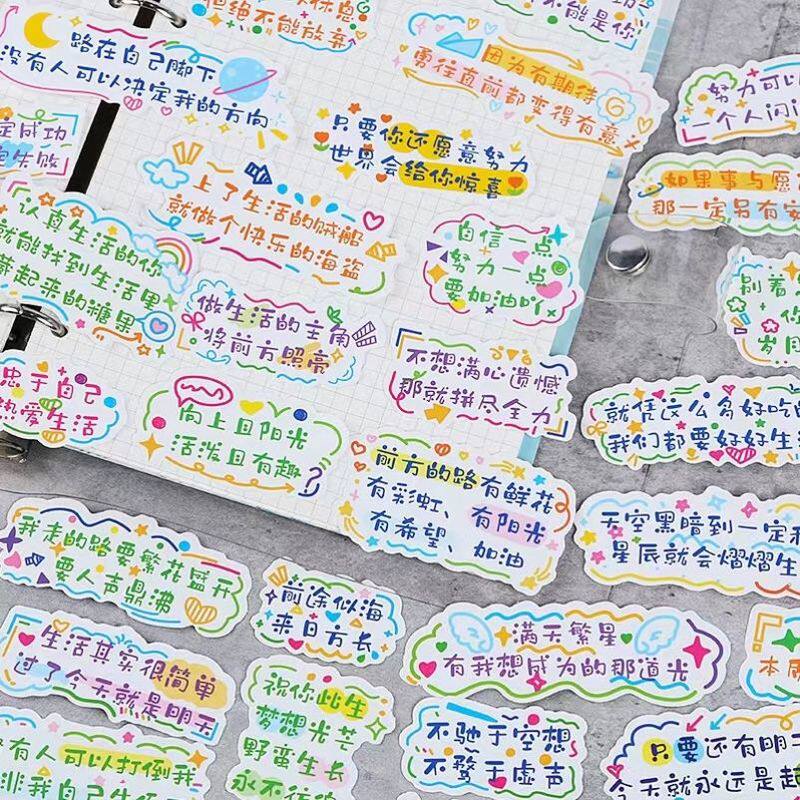 拒绝不能放弃
不能是你
路在自己脚下
没有人可以决定我的方向
因为有期待
勇往直前都变得有意义
努力可以
一个人闪
定成功
失败
只要你还愿意努力
世界会给你惊喜
如果事与愿
那一定另有安
上了生活的贼船
就做个快乐的海盗
认真生活的你
就能找到生活里
藏起来的糖果
自信一点
努力一点
要加油吖
别着
你
岁月
做生活的主角
将前方照亮
不想满心遗憾
那就拼尽全力
忠于自己
热爱生活
向上且阳光
活泼且有趣
就凭这么多好吃的
我们都要好好生
前方的路有鲜花
有彩虹、有阳光
有希望、加油
天空黑暗到一定程
星辰就会熠熠生
我走的路要繁花盛开
要人声鼎沸
前途似海
来日方长
满天繁星
有我想成为的那道光
生活其实很简单
过了今天就是明天
祝你此生
梦想光芒
野蛮生长
永不彷徨
不驰于空想
不骛于虚声
本
只要还有明
今天就永远是起
有人可以打倒我
非我自己先